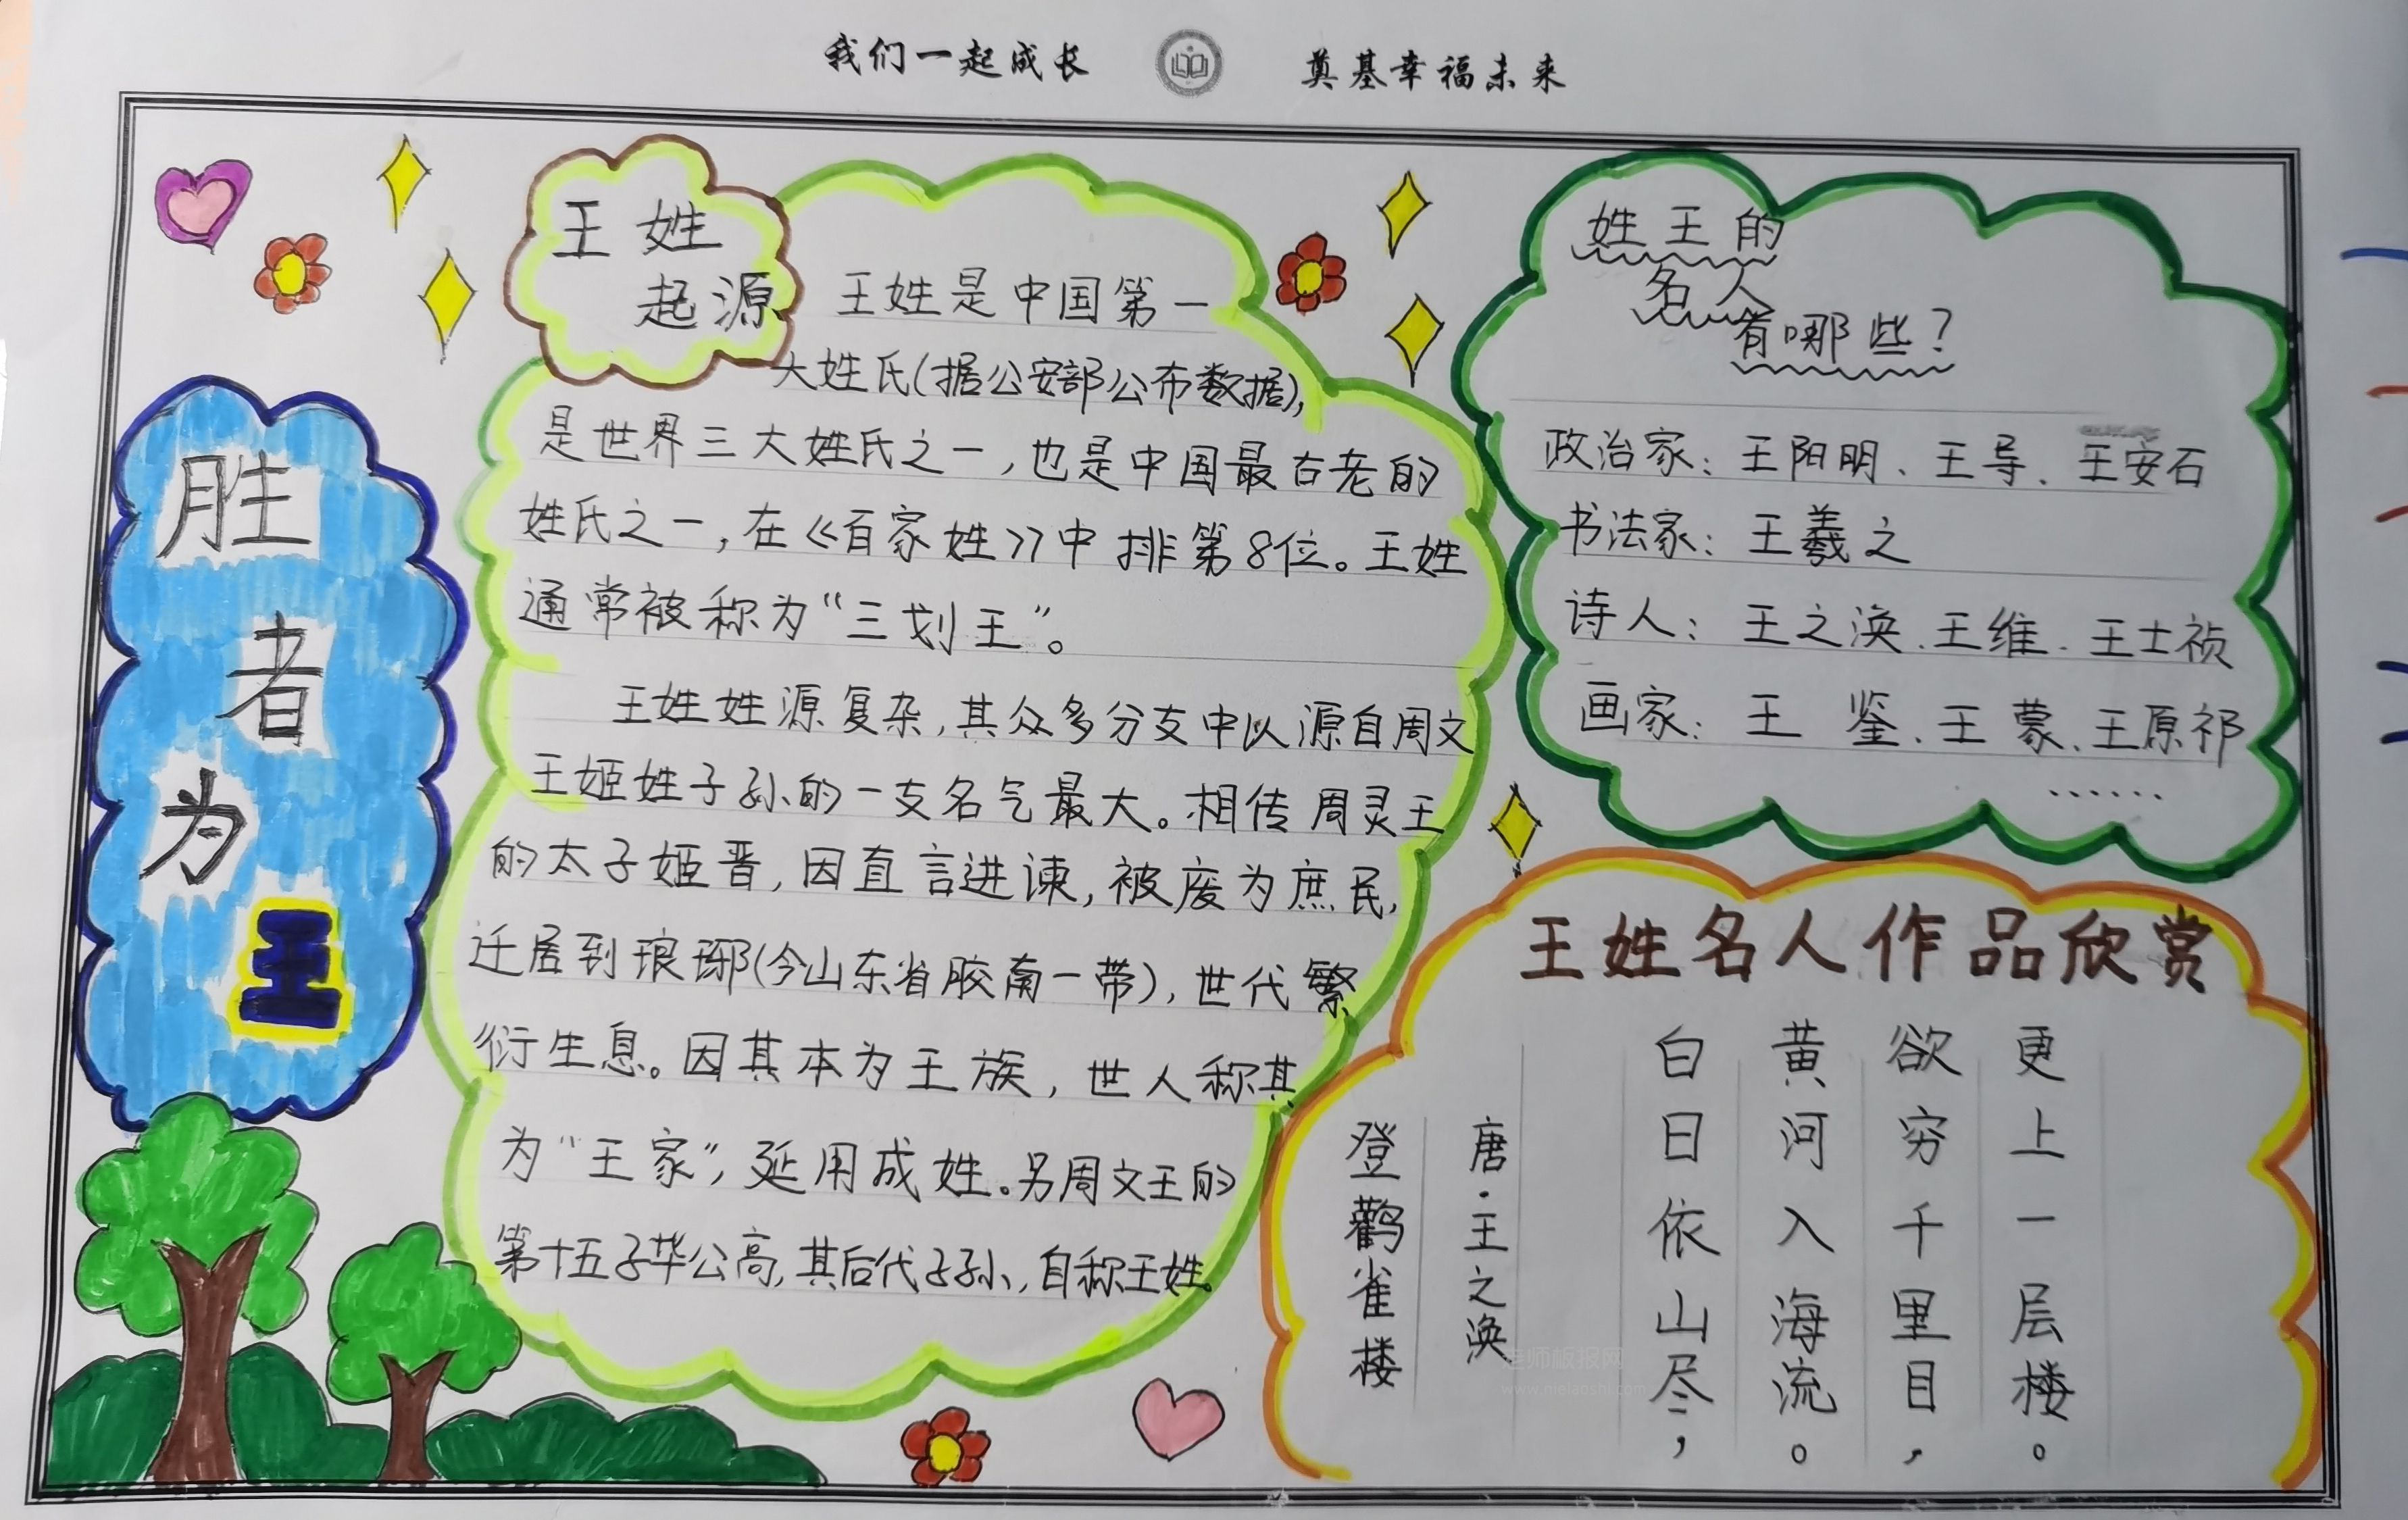 我们一起成长 奠基幸福未来
胜者为王
王姓
起源
王姓是中国第一
大姓氏(据公安部公布数据),
是世界三大姓氏之一,也是中国最古老的
姓氏之一,在《百家姓》中排第8位。王姓
通常被称为“三划王”。
王姓姓源复杂,其众多分支中以源自周文
王姬姓子孙的一支名气最大。相传周灵王
的太子姬晋,因直言进谏,被废为庶民,
迁居到琅琊(今山东省胶南一带),世代繁
衍生息。因其本为王族,世人称其
为“王家”,延用成姓。另周文王的
第十五子毕公高,其后代子孙,自称王姓。
姓王的
名人
有哪些?
政治家:王阳明、王导、王安石
书法家:王羲之
诗人:王之涣、王维、王士祯
画家:王鉴、王蒙、王原祁
······
王姓名人作品欣赏
登鹳雀楼
唐·王之涣
白日依山尽,
黄河入海流。
欲穷千里目,
更上一层楼。
老师板报网